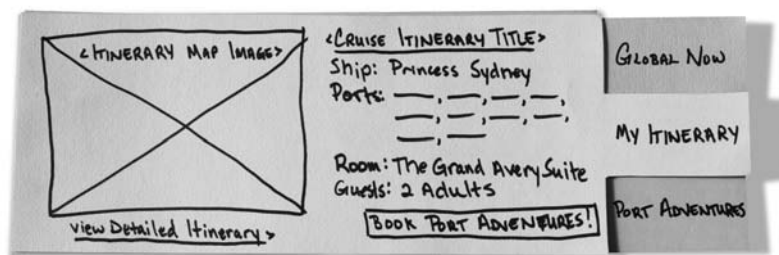 <ITINERARY MAP IMAGE>
View Detailed Itinerary >
<CRUISE ITINERARY TITLE>
Ship: Princess Sydney
Ports:
Room: The Grand Avery Suite
Guests: 2 Adults
BOOK PORT ADVENTURES!
GLOBAL NOW
MY ITINERARY
PORT ADVENTURES